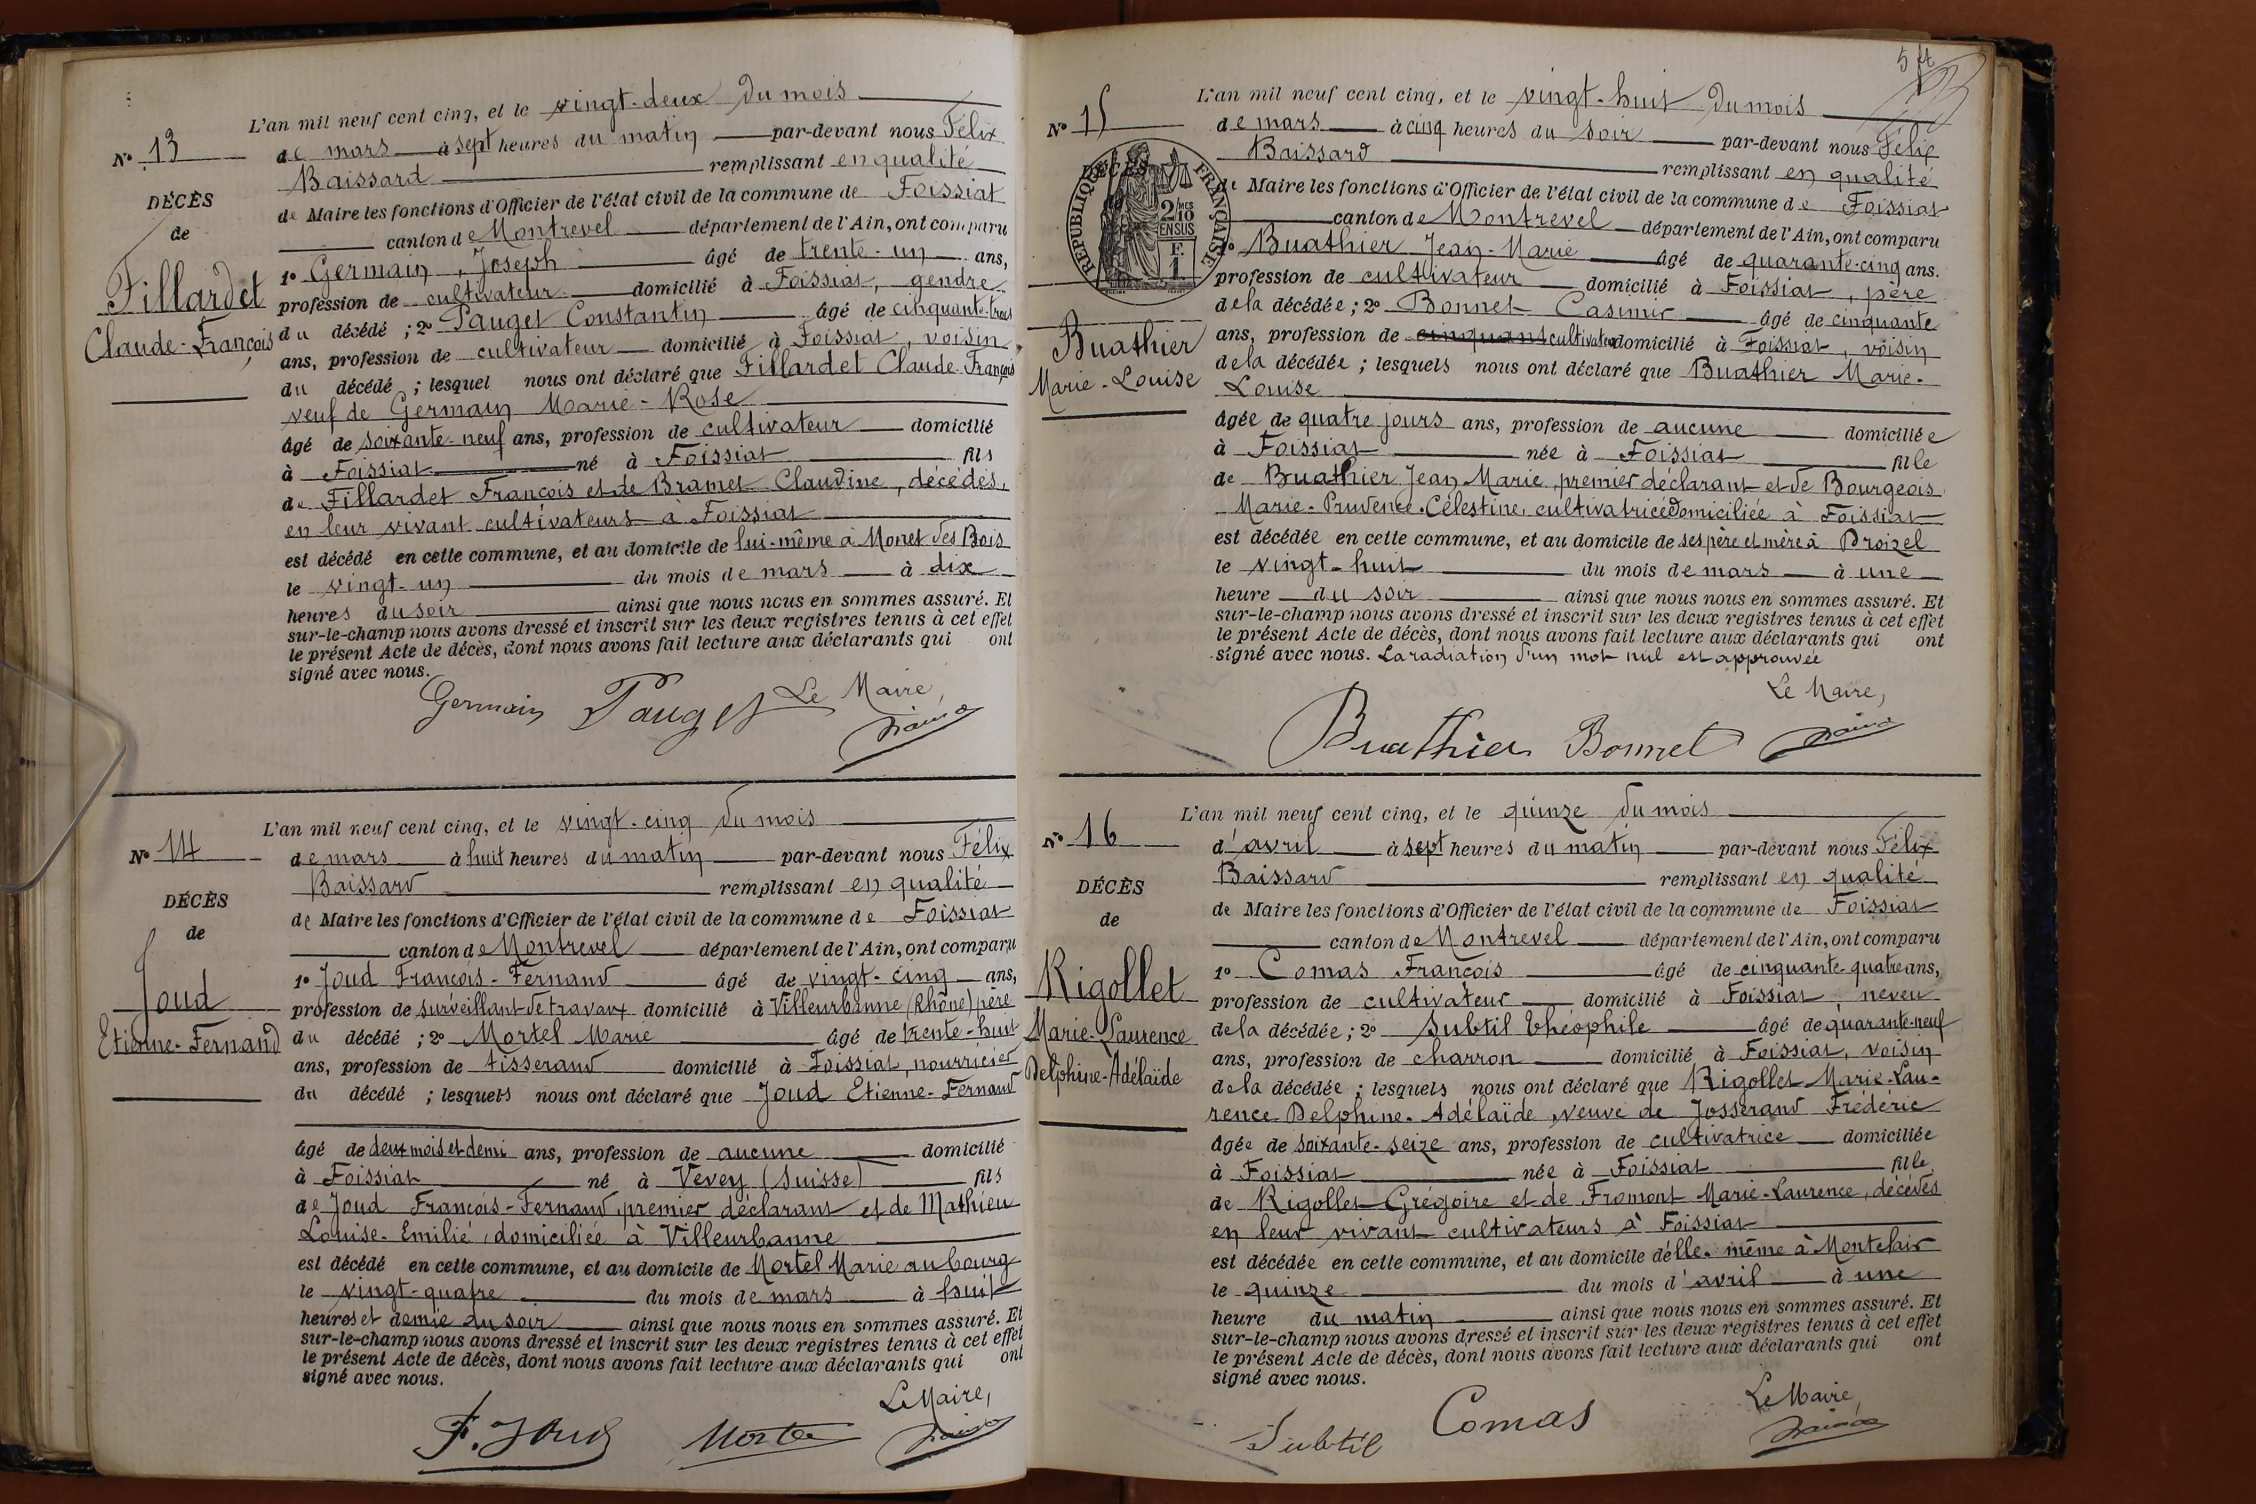 L'an mil neuf cent cinq, et le vingt-deux du mois
N° 13
de mars à sept heures du matin par-devant nous Félix
Baissard remplissant en qualité
DÉCÈS
de Maire les fonctions d'Officier de l'état civil de la commune de Foissiat
de
canton de Montrevel département de l'Ain, ont comparu
1° Germain, Joseph âgé de trente-un ans,
Fillardet
profession de cultivateur domicilié à Foissiat, gendre
Claude-François
du décédé ; 2° Pauget Constantin âgé de cinquante-trois
ans, profession de cultivateur domicilié à Foissiat, voisin
du décédé ; lesquel nous ont déclaré que Fillardet Claude-François
veuf de Germain Marie-Rose
âgé de soixante-neuf ans, profession de cultivateur domicilié
à Foissiat né à Foissiat fils
de Fillardet François et de Bramet Claudine, décédés,
en leur vivant cultivateurs à Foissiat
est décédé en cette commune, et au domicile de lui-même à Monet des Bois
le vingt-un du mois de mars à dix
heures du soir ainsi que nous nous en sommes assuré. Et
sur-le-champ nous avons dressé et inscrit sur les deux registres tenus à cet effet
le présent Acte de décès, dont nous avons fait lecture aux déclarants qui ont
signé avec nous.
Le Maire,
Germain Pauget
L'an mil neuf cent cinq, et le vingt-cinq du mois
N° 14
de mars à huit heures du matin par-devant nous Félix
Baissard remplissant en qualité
DÉCÈS
de Maire les fonctions d'Officier de l'état civil de la commune de Foissiat
de
canton de Montrevel département de l'Ain, ont comparu
1° Joud François-Fernand âgé de vingt-cinq ans,
Joud
profession de surveillant de travaux domicilié à Villeurbanne (Rhône) père
Etienne-Fernand
du décédé ; 2° Mortel Marie âgé de trente-huit
ans, profession de tisserand domicilié à Foissiat, nourricier
du décédé ; lesquels nous ont déclaré que Joud Etienne-Fernand
âgé de deux mois et demi ans, profession de aucune domicilié
à Foissiat né à Vevey (Suisse) fils
de Joud François-Fernand, premier déclarant et de Mathieu
Louise-Emilie, domiciliée à Villeurbanne
est décédé en cette commune, et au domicile de Mortel Marie au bourg
le vingt-quatre du mois de mars à huit
heures et demie du soir ainsi que nous nous en sommes assuré. Et
sur-le-champ nous avons dressé et inscrit sur les deux registres tenus à cet effet
le présent Acte de décès, dont nous avons fait lecture aux déclarants qui ont
signé avec nous.
Le Maire,
F. Joud
L'an mil neuf cent cinq, et le vingt-huit du mois
N° 15
de mars à cinq heures du soir par-devant nous Félix
Baissard remplissant en qualité
DÉCÈS
RÉPUBLIQUE FRANÇAISE
2/10 EN SUS
F. 1
de Maire les fonctions d'Officier de l'état civil de la commune de Foissiat
canton de Montrevel département de l'Ain, ont comparu
1° Buathier Jean-Marie âgé de quarante-cinq ans.
profession de cultivateur domicilié à Foissiat, père
de la décédée ; 2° Bonnet Casimir âgé de cinquante
Buathier
ans, profession de cinquant cultivateur domicilié à Foissiat, voisin
Marie-Louise
de la décédée ; lesquels nous ont déclaré que Buathier Marie-
Louise
âgée de quatre jours ans, profession de aucune domiciliée
à Foissiat née à Foissiat fille
de Buathier Jean Marie, premier déclarant et de Bourgeois
Marie-Prudence-Célestine, cultivatrice domiciliée à Foissiat
est décédée en cette commune, et au domicile de ses père et mère à Proizel
le vingt-huit du mois de mars à une
heure du soir ainsi que nous nous en sommes assuré. Et
sur-le-champ nous avons dressé et inscrit sur les deux registres tenus à cet effet
le présent Acte de décès, dont nous avons fait lecture aux déclarants qui ont
signé avec nous. La radiation d'un mot nul est approuvée
Le Maire,
Buathier Bonnet
L'an mil neuf cent cinq, et le quinze du mois
N° 16
d'avril à sept heures du matin par-devant nous Félix
Baissard remplissant en qualité
DÉCÈS
de Maire les fonctions d'Officier de l'état civil de la commune de Foissiat
de
canton de Montrevel département de l'Ain, ont comparu
1° Comas François âgé de cinquante-quatre ans,
Rigollet
profession de cultivateur domicilié à Foissiat, neveu
Marie-Laurence
de la décédée ; 2° Subtil Théophile âgé de quarante-neuf
ans, profession de charron domicilié à Foissiat, voisin
Delphine-Adélaïde
de la décédée ; lesquels nous ont déclaré que Rigollet Marie-Lau-
rence Delphine-Adélaïde, veuve de Josserand Frédéric
âgée de soixante-seize ans, profession de cultivatrice domiciliée
à Foissiat née à Foissiat fille
de Rigollet Grégoire et de Fromont Marie-Laurence, décédés
en leur vivant cultivateurs à Foissiat
est décédée en cette commune, et au domicile d'elle-même à Montclair
le quinze du mois d'avril à une
heure du matin ainsi que nous nous en sommes assuré. Et
sur-le-champ nous avons dressé et inscrit sur les deux registres tenus à cet effet
le présent Acte de décès, dont nous avons fait lecture aux déclarants qui ont
signé avec nous.
Le Maire,
Subtil Comas